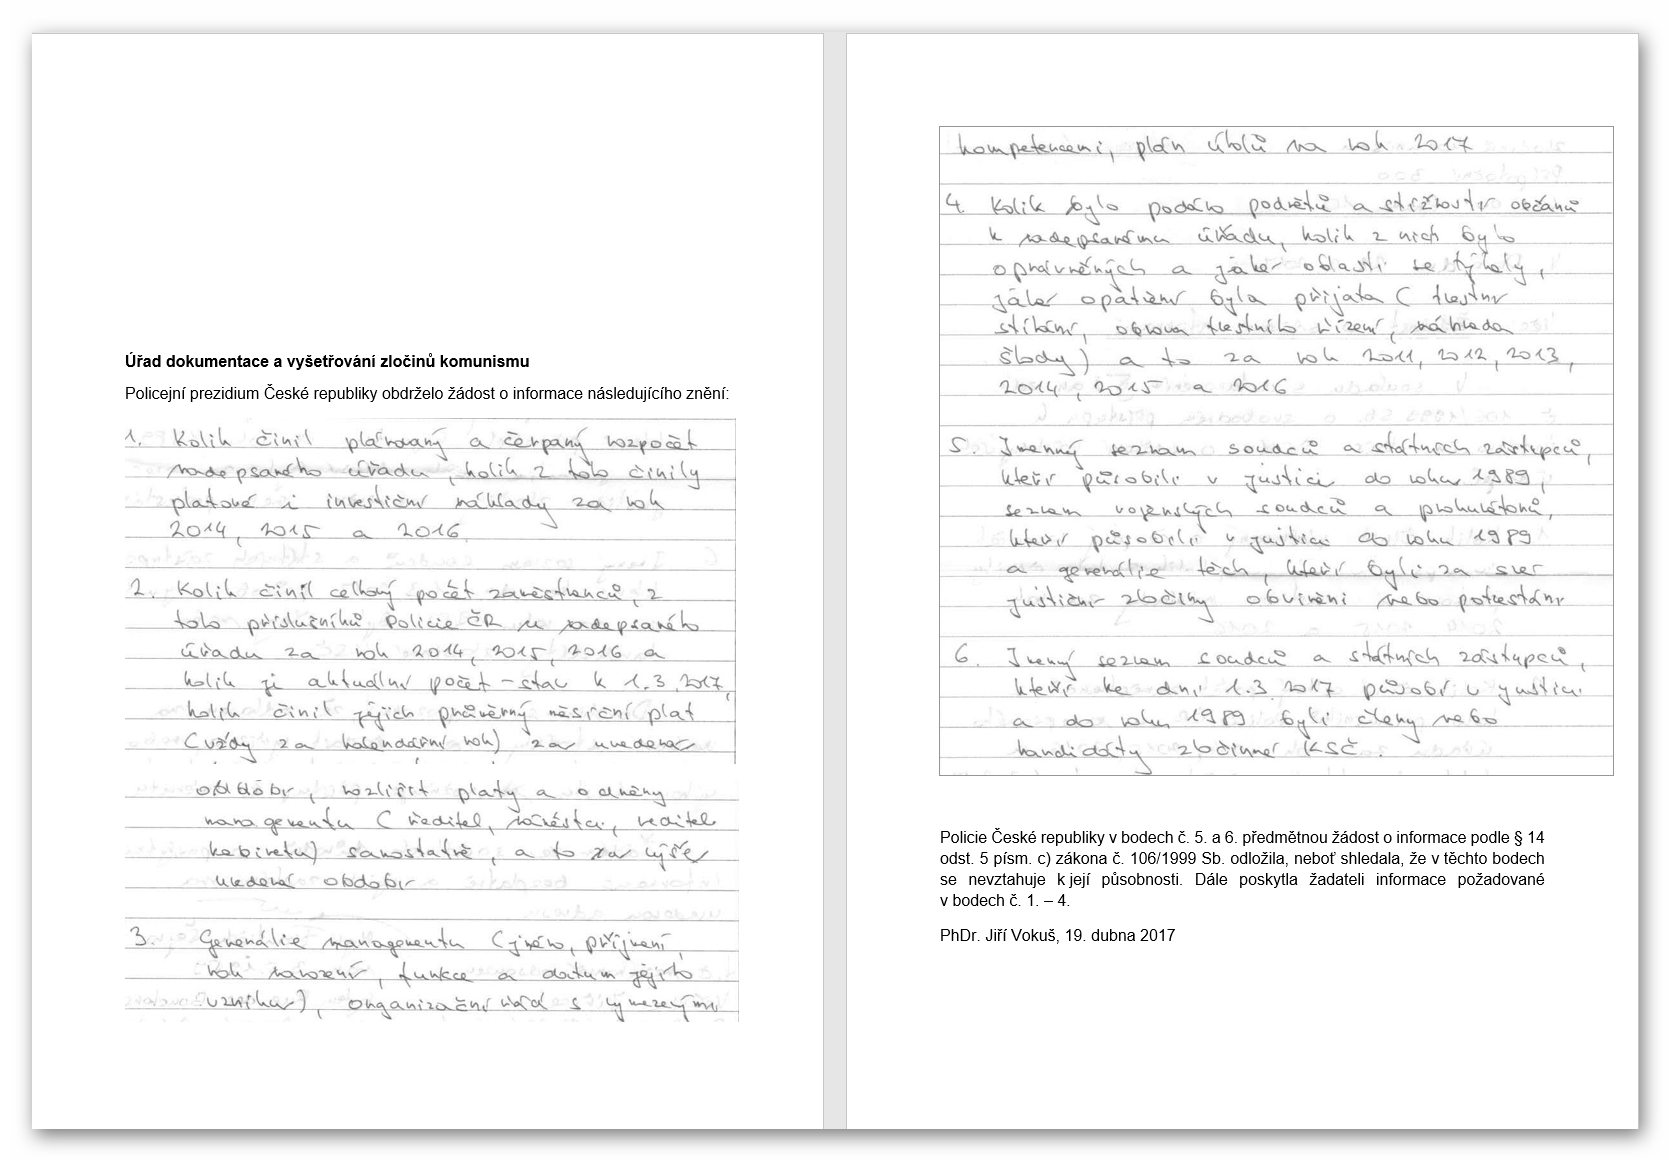 Úřad dokumentace a vyšetřování zločinů komunismu
Policejní prezidium České republiky obdrželo žádost o informace následujícího znění:
1. Kolik činil plánovaný a čerpaný rozpočet
nadepsaného úřadu, kolik z toho činily
platové i investiční náklady za rok
2014, 2015 a 2016.
2. Kolik činil celkový počet zaměstnanců, z
toho příslušníků Policie ČR u nadepsaného
úřadu za rok 2014, 2015, 2016 a
kolik je aktuální počet - stav k 1.3.2017,
kolik činil jejich průměrný měsíční plat
(vždy za kalendářní rok) za uvedené
období, rozlišit platy a odměny
managementu (ředitel, náměstci, ředitel
kabinetu) samostatně, a to za výše
uvedené období
3. Generálie managementu (jméno, příjmení,
rok narození, funkce a datum jejího
vzniku), organizační řád s vymezenými
kompetencemi, plán úkolů na rok 2017
4. Kolik bylo podáno podnětů a stížností občanů
k nadepsanému úřadu, kolik z nich bylo
oprávněných a jaké oblasti se týkaly,
jaké opatření byla přijata (trestní
stíhání, obnova trestního řízení, náhrada
škody) a to za rok 2011, 2012, 2013,
2014, 2015 a 2016
5. Jmenný seznam soudců a státních zástupců,
kteří působili v justici do roku 1989,
seznam vojenských soudců a prokurátorů,
kteří působili v justici do roku 1989
a generálie těch, kteří byli za své
justiční zločiny obviněni nebo potrestáni
6. Jmený seznam soudců a státních zástupců,
kteří ke dni 1.3.2017 působí v justici
a do roku 1989 byli členy nebo
kandidáty zločinné KSČ.
Policie České republiky v bodech č. 5. a 6. předmětnou žádost o informace podle § 14
odst. 5 písm. c) zákona č. 106/1999 Sb. odložila, neboť shledala, že v těchto bodech
se nevztahuje k její působnosti. Dále poskytla žadateli informace požadované
v bodech č. 1. – 4.
PhDr. Jiří Vokuš, 19. dubna 2017